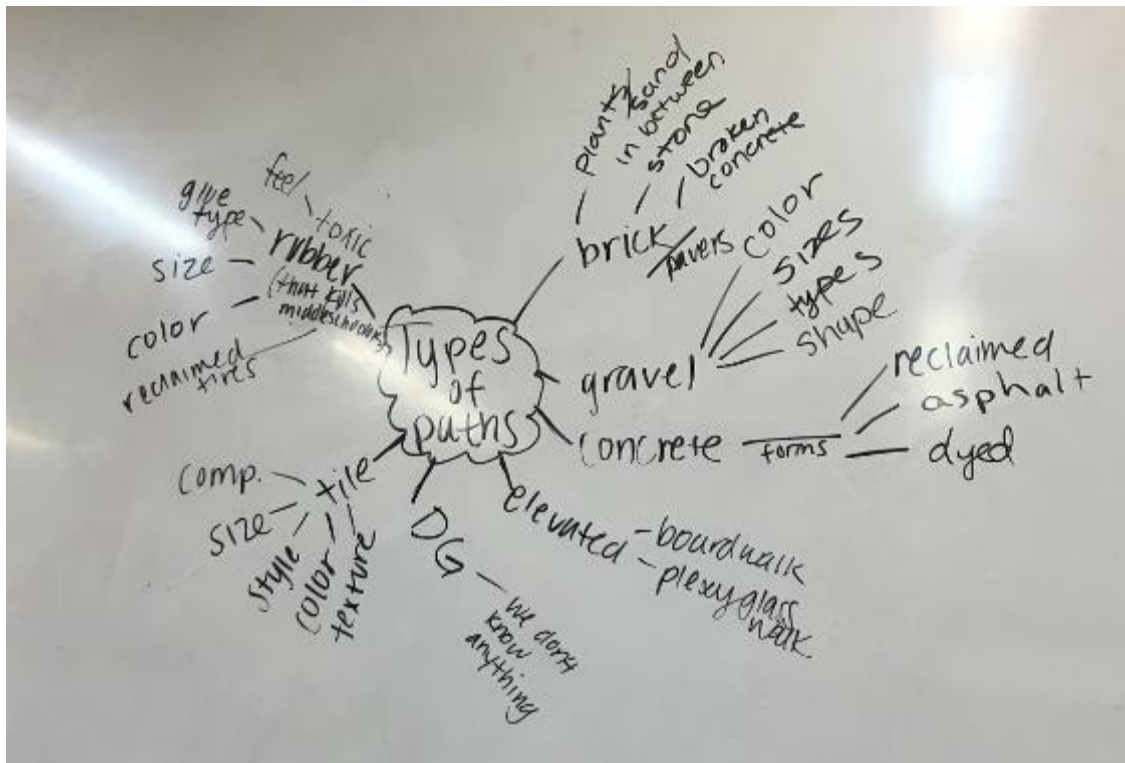 Types
of
paths
brick/pavers
plants/sand
in between
stone
broken
concrete
gravel
color
sizes
types
shape
concrete
forms
reclaimed
asphalt
dyed
elevated
- boardwalk
- plexyglass
walk.
DG
we don't
know
anything
tile
comp.
size
style
color
texture
rubber
(that kills
middleschoolers)
toxic
feel
glue
type
size
color
reclaimed
tires